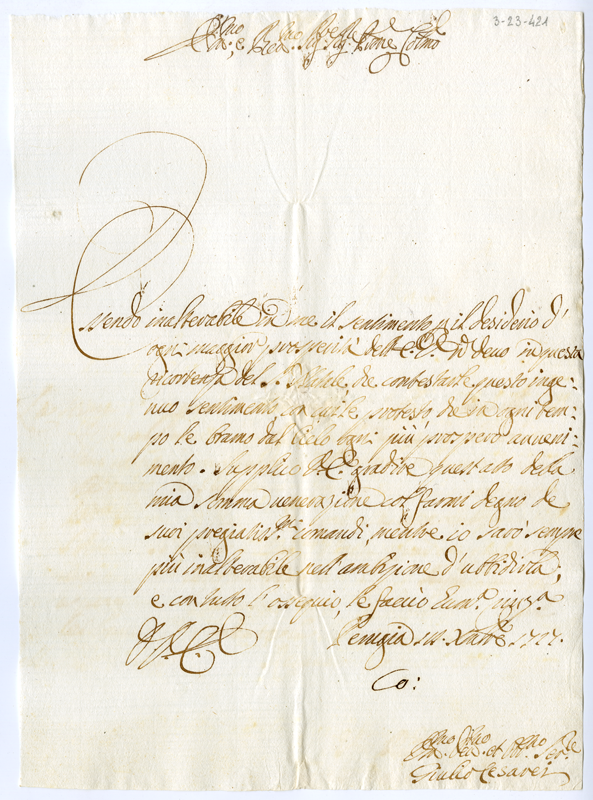 3-23-421
Em.mo e Rev.mo Sig.r Sig.r Prone Col.mo
Essendo inalterabile in me il sentimento, e il desiderio d'
ogni maggior prosperità dell'E.V. Io devo in questa
ricorrenza del S. Natale de contestarle questo inge-
nuo sentimento con cui le protesto de in ogni tem-
po le bramo dal Cielo ogni più prospero avveni-
mento. Supplico V.E. gradire quest'atto della
mia somma venerazione col farmi degno de
suoi pregiatis.mi comandi, mentre io sarò sempre
più inalterabile nell'ambizione d'ubbidirla;
e con tutto l'ossequio, le faccio
Perugia Xmbre 1727.
Co:
Giulio Cesarei